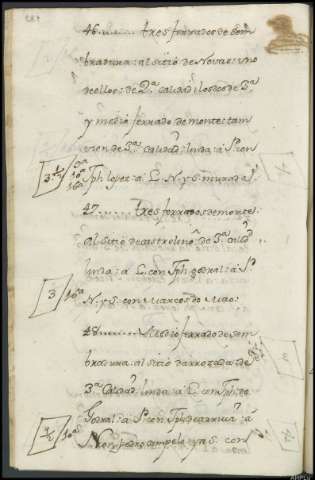 46...... tres ferrados de sem
bradura: al sitio de Novas: uno
de ellos: de 2ª calidad: los dos de 3ª
y medio ferrado de monte: tam
vien de 3ª calidad: linda: a Pte con
3 1/2 9ª 10ª 16ª Jph lopez: a L. N. y S. murada
47...... tres ferrados de monte:
al sitio de castrolino: de 3ª calidd
linda: a L. con Jph godral: a P.
3 16ª N. y S. con Marcos do Mao:
48...... Medio ferrado de sem
bradura: al sitio da rrozada de
3ª Calidad linda: a L. con Jph. do
Godral: a P. con Jph de carrice: a
1/2 10ª N. con Pedro ampelo y a S. con